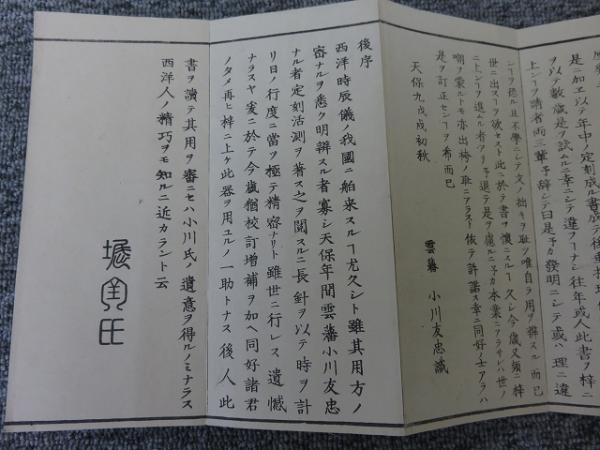 是ニ加ヱ以テ年中ノ定刻成ル書成テ後
ヲ以テ數歳是ヲ試ムルニ幸ニシテ違フーナシ往年或人此書ヲ梓ニ
上シーヲ請者両三輩予辞シテ曰是予カ發明ニシテ或ハ理ニ違
シーヲ恐ル且不學ニシテ文ノ拙キヲ耻ツ唯自ラ用ヲ辨スル而已
世ニ出スーヲ欲セスト此ニ於テ書ヲ懐ニスルー久シ今歳又頻ニ梓
ニ上シーヲ進ムル者アリ予退テ是ヲ慮ルニ予カ本業ニアラサレハ世ノ
嘲ヲ蒙ルトモ亦出格ノ耻ニアラスト依テ許諾ス幸ニ同好ノ士アラハ
是ヲ訂正センーヲ希而已
天保九戊戌初秋
雲藩 小川友忠識
後序
西洋時辰儀ノ我國ニ舶来スルー尤久シト雖其用方ノ
審ナルヲ悉ク明辨スル者寡シ天保年間雲藩小川友忠
ナル者定刻活測ヲ著ス之ヲ閲スルニ長針ヲ以テ時ヲ計
リ日ノ行度ニ當ヲ極テ精密ナリト雖世ニ行レス遺憾
ナラスヤ爰ニ於テ今嵗僭校訂増補ヲ加ヘ同好諸君
ノタメ再ヒ梓ニ上ケ此器ヲ用ユルノ一助トナス後人此
書ヲ讀テ其用ヲ審ニセハ小川氏ノ遺意ヲ得ルノミナラス
西洋人ノ精巧ヲモ知ルニ近カラント云